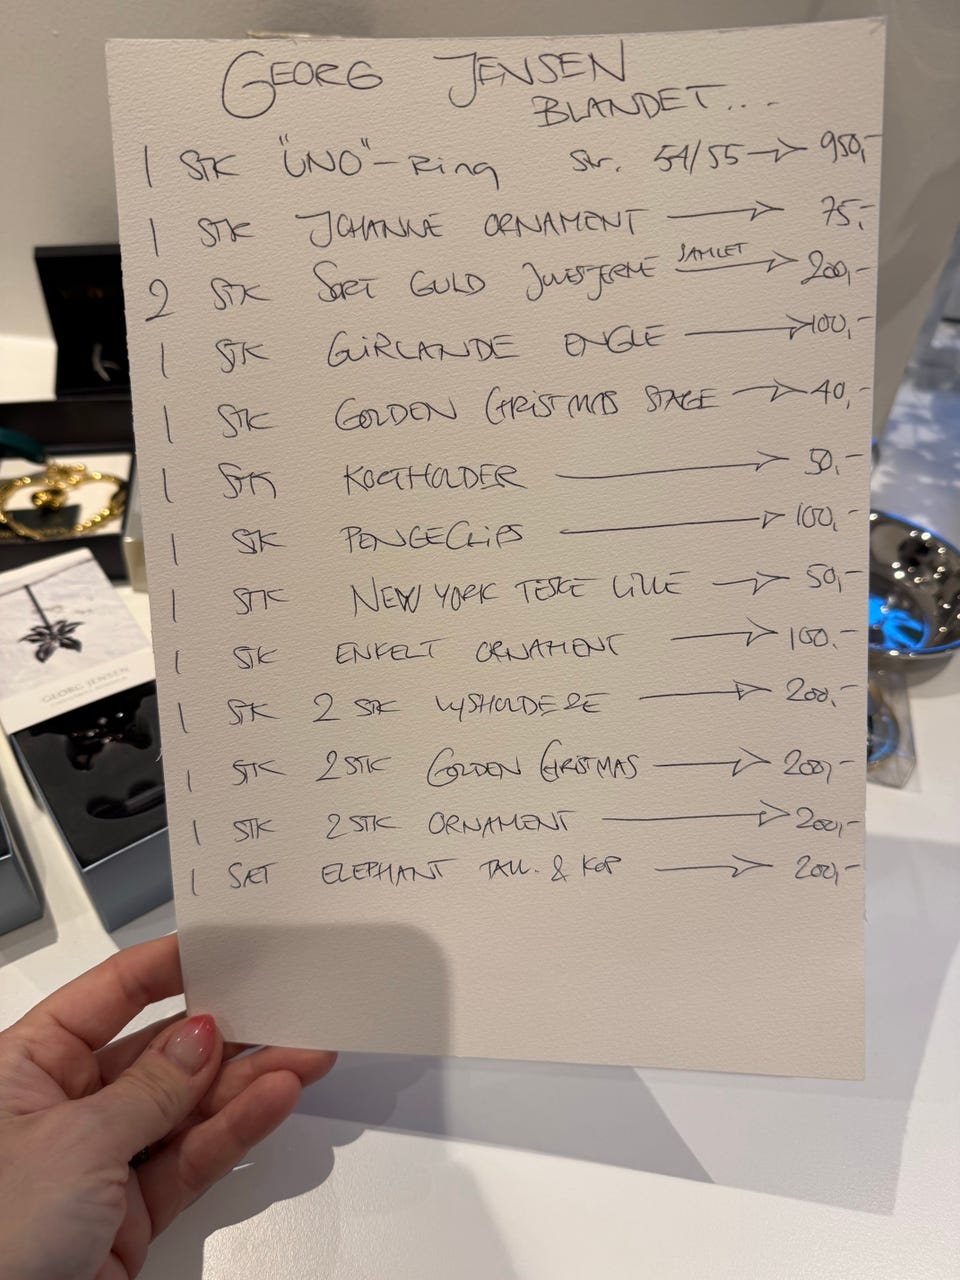 GEORG JENSEN
BLANDET...
1 STK "UNO"-Ring Str. 54/55 → 950,-
1 STK JOHANNE ORNAMENT → 75,-
2 STK SORT GULD JULESTJERNE SAMLET → 200,-
1 STK GUIRLANDE ENGLE → 100,-
1 STK GOLDEN CHRISTMAS STAGE → 40,-
1 STK KORTHOLDER → 50,-
1 STK PENGECLIPS → 100,-
1 STK NEW YORK TESKE LILLE → 50,-
1 STK ENKELT ORNAMENT → 100.-
1 STK 2 STK LYSHOLDERE → 200,-
1 STK 2 STK GOLDEN CHRISTMAS → 200,-
1 STK 2 STK ORNAMENT → 200,-
1 SÆT ELEPHANT TALL. & KOP → 200,-
GEORG JENSEN